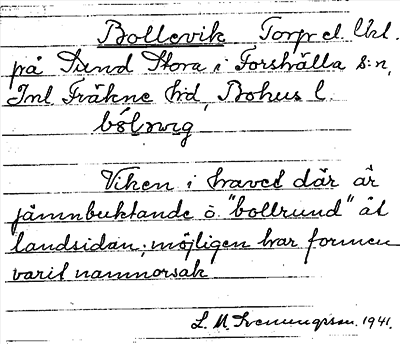 Bollevik Torp el. Utl.
på Sund Stora i Forshälla s:n,
Inl Fräkne hd, Bohus l.
Viken i havet där är
jämnbuktande o. "bollrund" åt
landsidan; möjligen har formen
varit namnorsak
L. M. Svenungsson. 1941.